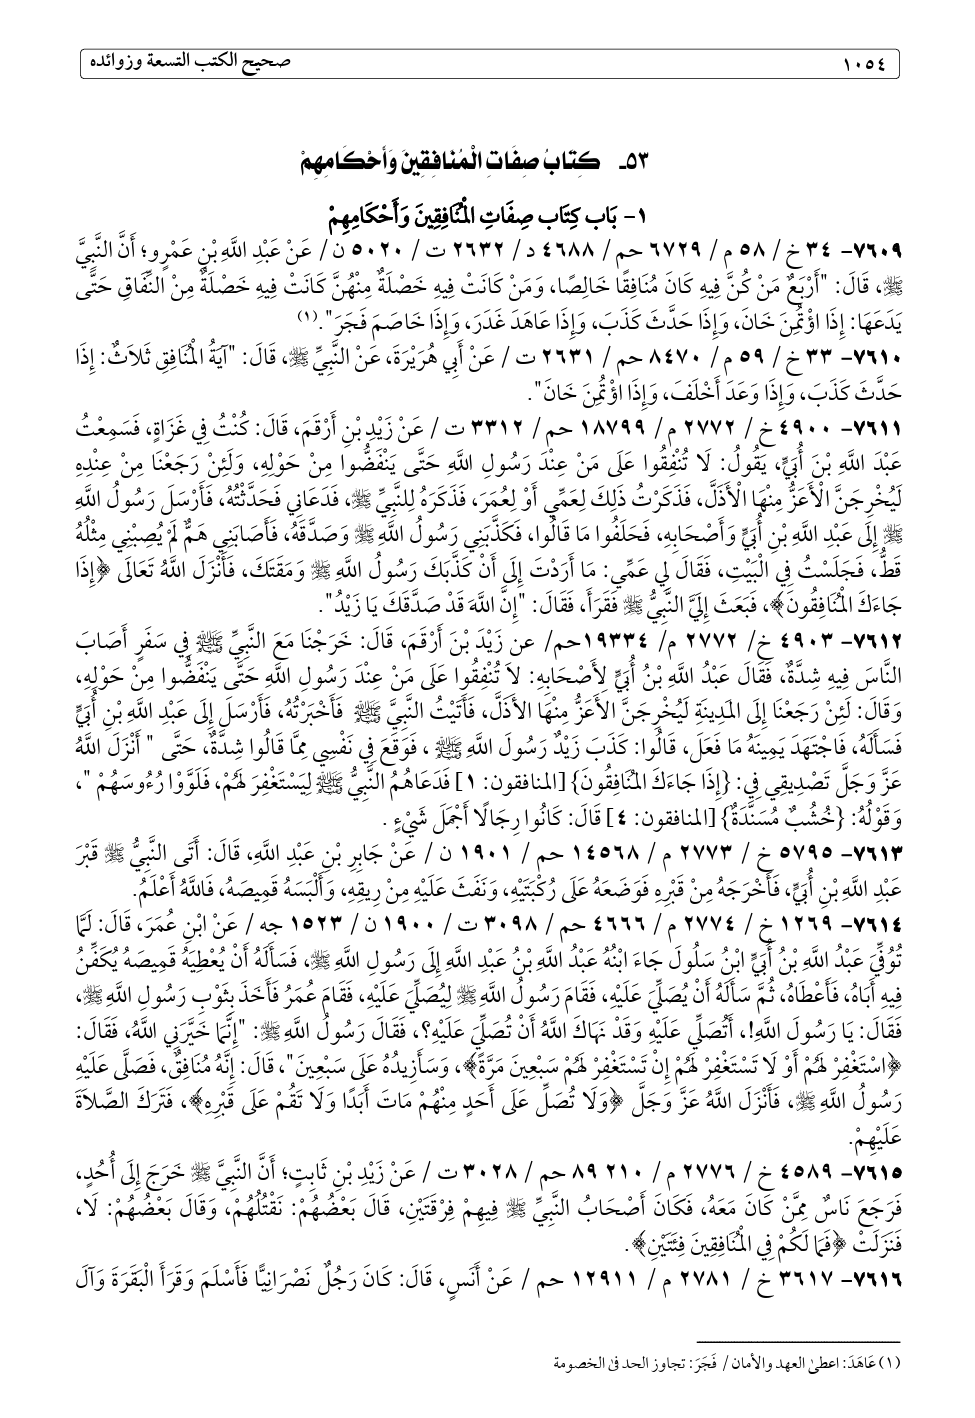 ١٠٥٤ صحيح الكتب التسعة وزوائده
٥٣ـ كِتَابُ صِفَاتِ الْمُنَافِقِينَ وَأَحْكَامِهِمْ
١- بَاب كِتَاب صِفَاتِ الْمُنَافِقِينَ وَأَحْكَامِهِمْ
٧٦٠٩- ٣٤ خ/ ٥٨ م/ ٦٧٢٩ حم/ ٤٦٨٨ د/ ٢٦٣٢ ت/ ٥٠٢٠ ن/ عَنْ عَبْدِ اللَّهِ بْنِ عَمْرٍو؛ أَنَّ النَّبِيَّ
ﷺ، قَالَ: "أَرْبَعٌ مَنْ كُنَّ فِيهِ كَانَ مُنَافِقًا خَالِصًا، وَمَنْ كَانَتْ فِيهِ خَصْلَةٌ مِنْهُنَّ كَانَتْ فِيهِ خَصْلَةٌ مِنْ النِّفَاقِ حَتَّى
يَدَعَهَا: إِذَا اؤْتُمِنَ خَانَ، وَإِذَا حَدَّثَ كَذَبَ، وَإِذَا عَاهَدَ غَدَرَ، وَإِذَا خَاصَمَ فَجَرَ".(١)
٧٦١٠- ٣٣ خ/ ٥٩ م/ ٨٤٧٠ حم/ ٢٦٣١ ت/ عَنْ أَبِي هُرَيْرَةَ، عَنْ النَّبِيِّ ﷺ، قَالَ: "آيَةُ الْمُنَافِقِ ثَلَاثٌ: إِذَا
حَدَّثَ كَذَبَ، وَإِذَا وَعَدَ أَخْلَفَ، وَإِذَا اؤْتُمِنَ خَانَ".
٧٦١١- ٤٩٠٠ خ/ ٢٧٧٢ م/ ١٨٧٩٩ حم/ ٣٣١٢ ت/ عَنْ زَيْدِ بْنِ أَرْقَمَ، قَالَ: كُنْتُ فِي غَزَاةٍ، فَسَمِعْتُ
عَبْدَ اللَّهِ بْنَ أُبَيٍّ، يَقُولُ: لَا تُنْفِقُوا عَلَى مَنْ عِنْدَ رَسُولِ اللَّهِ حَتَّى يَنْفَضُّوا مِنْ حَوْلِهِ، وَلَئِنْ رَجَعْنَا مِنْ عِنْدِهِ
لَيُخْرِجَنَّ الْأَعَزُّ مِنْهَا الْأَذَلَّ، فَذَكَرْتُ ذَلِكَ لِعَمِّي أَوْ لِعُمَرَ، فَذَكَرَهُ لِلنَّبِيِّ ﷺ، فَدَعَانِي فَحَدَّثْتُهُ، فَأَرْسَلَ رَسُولُ اللَّهِ
ﷺ إِلَى عَبْدِ اللَّهِ بْنِ أُبَيٍّ وَأَصْحَابِهِ، فَحَلَفُوا مَا قَالُوا، فَكَذَّبَنِي رَسُولُ اللَّهِ ﷺ وَصَدَّقَهُ، فَأَصَابَنِي هَمٌّ لَمْ يُصِبْنِي مِثْلُهُ
قَطُّ، فَجَلَسْتُ فِي الْبَيْتِ، فَقَالَ لِي عَمِّي: مَا أَرَدْتَ إِلَى أَنْ كَذَّبَكَ رَسُولُ اللَّهِ ﷺ وَمَقَتَكَ، فَأَنْزَلَ اللَّهُ تَعَالَى ﴿إِذَا
جَاءَكَ الْمُنَافِقُونَ﴾، فَبَعَثَ إِلَيَّ النَّبِيُّ ﷺ فَقَرَأَ، فَقَالَ: "إِنَّ اللَّهَ قَدْ صَدَّقَكَ يَا زَيْدُ".
٧٦١٢- ٤٩٠٣ خ/ ٢٧٧٢ م/ ١٩٣٣٤حم/ عن زَيْدَ بْنَ أَرْقَمَ، قَالَ: خَرَجْنَا مَعَ النَّبِيِّ ﷺ فِي سَفَرٍ أَصَابَ
النَّاسَ فِيهِ شِدَّةٌ، فَقَالَ عَبْدُ اللَّهِ بْنُ أُبَيٍّ لِأَصْحَابِهِ: لاَ تُنْفِقُوا عَلَى مَنْ عِنْدَ رَسُولِ اللَّهِ حَتَّى يَنْفَضُّوا مِنْ حَوْلِهِ،
وَقَالَ: لَئِنْ رَجَعْنَا إِلَى المَدِينَةِ لَيُخْرِجَنَّ الأَعَزُّ مِنْهَا الأَذَلَّ، فَأَتَيْتُ النَّبِيَّ ﷺ فَأَخْبَرْتُهُ، فَأَرْسَلَ إِلَى عَبْدِ اللَّهِ بْنِ أُبَيٍّ
فَسَأَلَهُ، فَاجْتَهَدَ يَمِينَهُ مَا فَعَلَ، قَالُوا: كَذَبَ زَيْدٌ رَسُولَ اللَّهِ ﷺ ، فَوَقَعَ فِي نَفْسِي مِمَّا قَالُوا شِدَّةٌ، حَتَّى " أَنْزَلَ اللَّهُ
عَزَّ وَجَلَّ تَصْدِيقِي فِي: {إِذَا جَاءَكَ المُنَافِقُونَ} [المنافقون: ١] فَدَعَاهُمُ النَّبِيُّ ﷺ لِيَسْتَغْفِرَ لَهُمْ، فَلَوَّوْا رُءُوسَهُمْ "،
وَقَوْلُهُ: {خُشُبٌ مُسَنَّدَةٌ} [المنافقون: ٤] قَالَ: كَانُوا رِجَالًا أَجْمَلَ شَيْءٍ .
٧٦١٣- ٥٧٩٥ خ / ٢٧٧٣ م/ ١٤٥٦٨ حم/ ١٩٠١ ن/ عَنْ جَابِرِ بْنِ عَبْدِ اللَّهِ، قَالَ: أَتَى النَّبِيُّ ﷺ قَبْرَ
عَبْدِ اللَّهِ بْنِ أُبَيٍّ، فَأَخْرَجَهُ مِنْ قَبْرِهِ فَوَضَعَهُ عَلَى رُكْبَتَيْهِ، وَنَفَثَ عَلَيْهِ مِنْ رِيقِهِ، وَأَلْبَسَهُ قَمِيصَهُ، فَاللَّهُ أَعْلَمُ.
٧٦١٤- ١٢٦٩ خ/ ٢٧٧٤ م/ ٤٦٦٦ حم/ ٣٠٩٨ ت/ ١٩٠٠ ن/ ١٥٢٣ جه/ عَنْ ابْنِ عُمَرَ، قَالَ: لَمَّا
تُوُفِّيَ عَبْدُ اللَّهِ بْنُ أُبَيٍّ ابْنُ سَلُولَ جَاءَ ابْنُهُ عَبْدُ اللَّهِ بْنُ عَبْدِ اللَّهِ إِلَى رَسُولِ اللَّهِ ﷺ، فَسَأَلَهُ أَنْ يُعْطِيَهُ قَمِيصَهُ يُكَفِّنُ
فِيهِ أَبَاهُ، فَأَعْطَاهُ، ثُمَّ سَأَلَهُ أَنْ يُصَلِّيَ عَلَيْهِ، فَقَامَ رَسُولُ اللَّهِ ﷺ لِيُصَلِّيَ عَلَيْهِ، فَقَامَ عُمَرُ فَأَخَذَ بِثَوْبِ رَسُولِ اللَّهِ ﷺ،
فَقَالَ: يَا رَسُولَ اللَّهِ!، أَتُصَلِّي عَلَيْهِ وَقَدْ نَهَاكَ اللَّهُ أَنْ تُصَلِّيَ عَلَيْهِ؟، فَقَالَ رَسُولُ اللَّهِ ﷺ: "إِنَّمَا خَيَّرَنِي اللَّهُ، فَقَالَ:
﴿اسْتَغْفِرْ لَهُمْ أَوْ لَا تَسْتَغْفِرْ لَهُمْ إِنْ تَسْتَغْفِرْ لَهُمْ سَبْعِينَ مَرَّةً﴾، وَسَأَزِيدُهُ عَلَى سَبْعِينَ"، قَالَ: إِنَّهُ مُنَافِقٌ، فَصَلَّى عَلَيْهِ
رَسُولُ اللَّهِ ﷺ، فَأَنْزَلَ اللَّهُ عَزَّ وَجَلَّ ﴿وَلَا تُصَلِّ عَلَى أَحَدٍ مِنْهُمْ مَاتَ أَبَدًا وَلَا تَقُمْ عَلَى قَبْرِهِ﴾، فَتَرَكَ الصَّلاَةَ
عَلَيْهِمْ.
٧٦١٥- ٤٥٨٩ خ/ ٢٧٧٦ م/ ٢١٠ ٨٩ حم/ ٣٠٢٨ ت/ عَنْ زَيْدِ بْنِ ثَابِتٍ؛ أَنَّ النَّبِيَّ ﷺ خَرَجَ إِلَى أُحُدٍ،
فَرَجَعَ نَاسٌ مِمَّنْ كَانَ مَعَهُ، فَكَانَ أَصْحَابُ النَّبِيِّ ﷺ فِيهِمْ فِرْقَتَيْنِ، قَالَ بَعْضُهُمْ: نَقْتُلُهُمْ، وَقَالَ بَعْضُهُمْ: لَا،
فَنَزَلَتْ ﴿فَمَا لَكُمْ فِي الْمُنَافِقِينَ فِئَتَيْنِ﴾.
٧٦١٦- ٣٦١٧ خ/ ٢٧٨١ م/ ١٢٩١١ حم/ عَنْ أَنَسٍ، قَالَ: كَانَ رَجُلٌ نَصْرَانِيًّا فَأَسْلَمَ وَقَرَأَ الْبَقَرَةَ وَآلَ
(١) عَاهَدَ: اعطىٰ العهد والأمان/ فَجَرَ: تجاوز الحد فى الخصومة